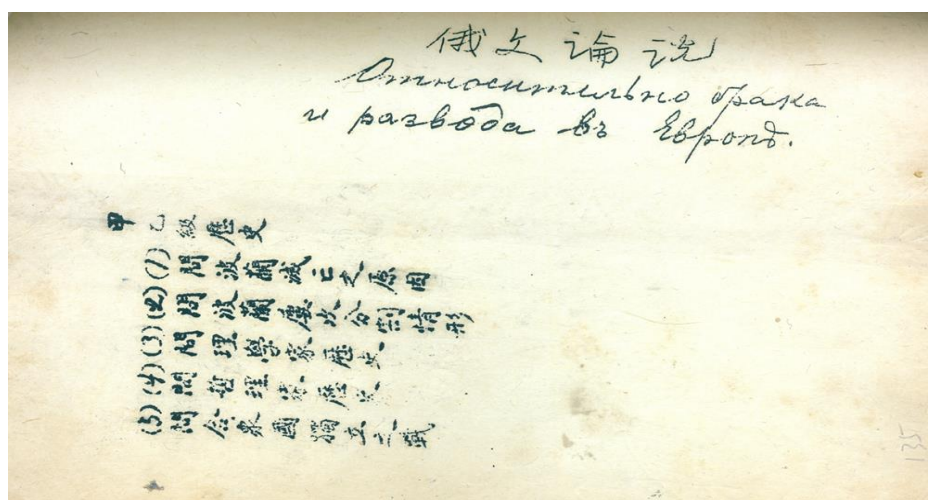 俄文論説
Относительно брака
и развода въ Европѣ.
甲乙級歷史
(1)問波蘭滅亡之原因
(2)問波蘭屢次分割情形
(3)問理學家歷史
(4)問哲理家歷史
(5)問合衆國獨立之戰
135